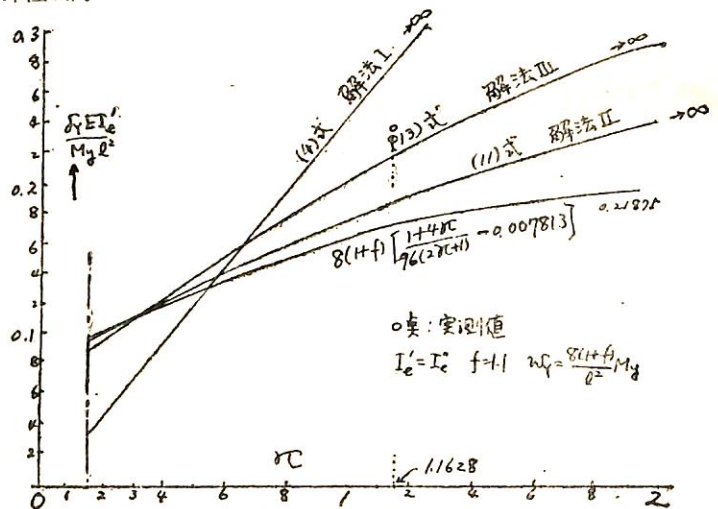 0.3
8
6
4
2
0.2
8
6
4
2
0.1
8
6
4
2
0
δyEIe'
Myl²
(4)式 解法I →∞
(13)式 解法III →∞
(11)式 解法II →∞
8(1+f)[1+4π/96(2π+1) - 0.007813] 0.21875
○奌:実測値
Ie'=Ie" f=1.1 wy=8(1+f)/l² My
π
1.1628
0 1 2 4 6 8 1 2 4 6 8 2